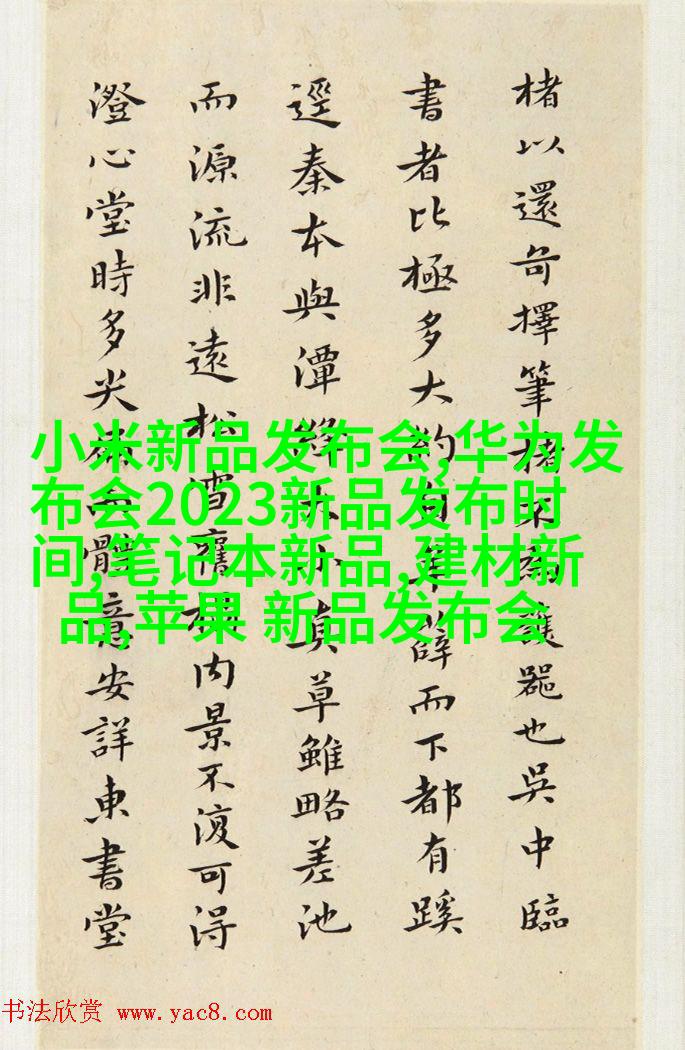 楮以還奇擇筆楮不為護器也吳中臨
書者比極多大約自率薛而下都有蹊
逕秦本與潭絳小真草雖略差池
而源流非遠松雪舊內景不復可得
澄心堂時多尖體意安詳東書堂
小米新品发布会,华为发
布会2023新品发布时
间,笔记本新品,建材新
品,苹果 新品发布会
书法欣赏 www.yac8.com